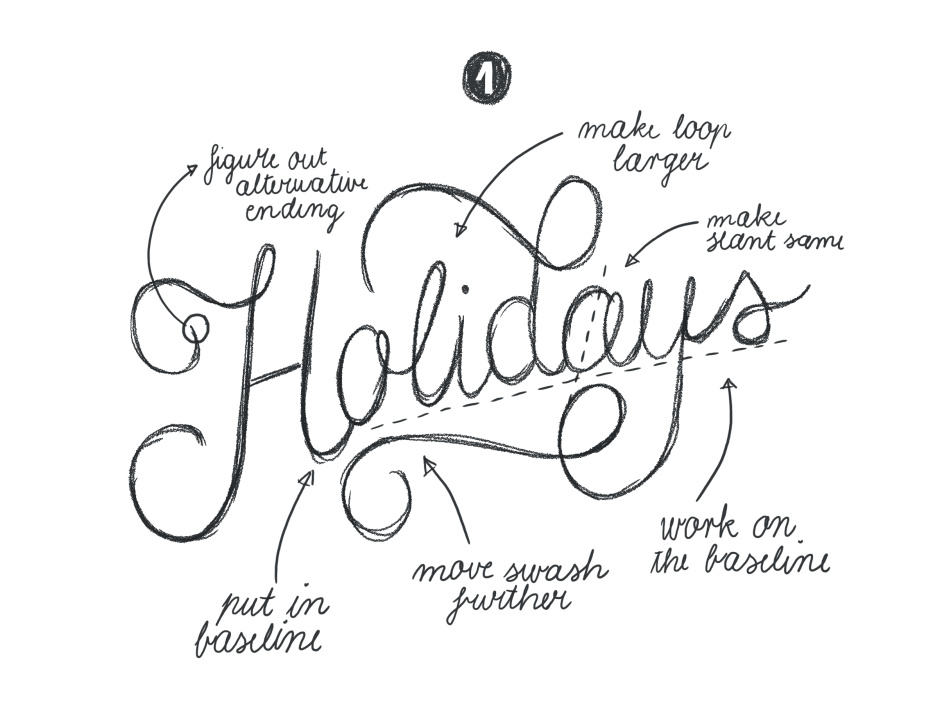 1
figure out
alternative
ending
make loop
larger
make
slant same
Holidays
work on
the baseline
move swash
further
put in
baseline